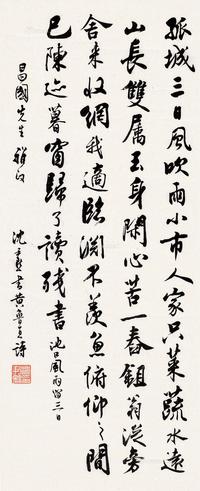 孤城三日風吹雨小市人家只菜蔬水遠
山長雙屬玉身閑心苦一舂鉏翁從旁
舍來收網我適臨淵不羨魚俯仰之間
已陳迹暮窗歸了讀殘書 池口風雨留三日
昌國先生雅
沈尹默書黃魯直詩